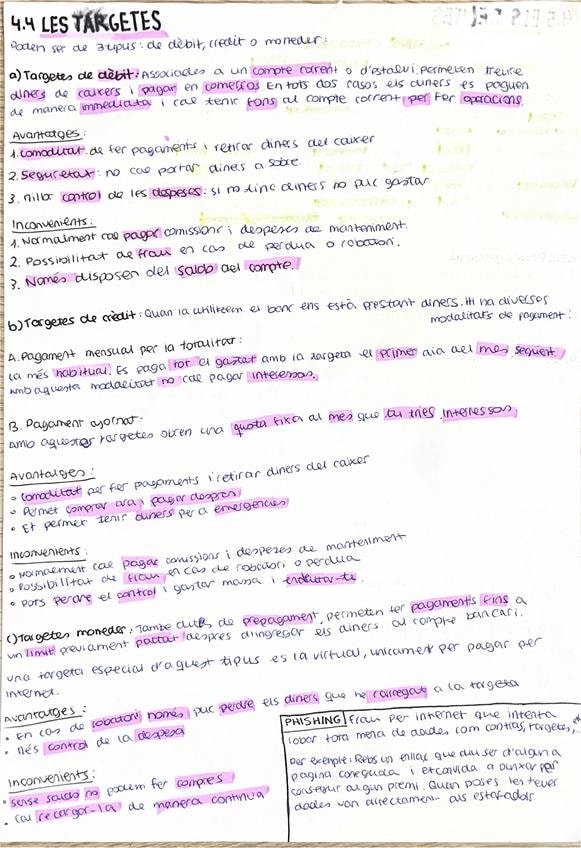 4.4 LES TARGETES
Poden ser de 3 tipus: de dèbit, crèdit o moneder:
a) Targetes de dèbit: Associades a un compte corrent o d'estalvi. Permeten treure
diners de caixers i pagar en comerços En tots dos casos els diners es paguen
de manera immediata i cal tenir fons al compte corrent per fer operacions.
Avantatges:
1. Comoditat de fer pagaments i retirar diners del caixer
2. Seguretat: no cal portar diners a sobre.
3. Millor control de les despeses: si no tinc diners no puc gastar
Inconvenients:
1. Normalment cal pagar comissions i despeses de manteniment.
2. Possibilitat de frau en cas de perdua o robatori.
3. Només disposen del saldo del compte.
b) Targetes de crèdit: Quan la utilitzem el banc ens està prestant diners. Hi ha diverses
modalitats de pagament:
A. Pagament mensual per la totalitat:
La més habitual. Es paga tot el gastat amb la targeta el primer dia del mes següent.
Amb aquesta modalitat no cal pagar interessos.
B. Pagament ajornat:
amb aquestes targetes obren una quota fixa al mes que tu tries, interessos,
Avantatges:
• Comoditat per fer pagaments i retirar diners del caixer
• Permet comprar ara, pagar després
• Et permet tenir diners per a emergències
Inconvenients:
• Normalment cal pagar comissions i despeses de manteniment
• Possibilitat de frau en cas de robatori o perdua
• Pots perdre el control i gastar massa i endeutar-te.
C) Targetes moneder: També dites de prepagament, permeten fer pagaments fins a
un limit previament pactat despres d'ingresar els diners al compte bancari.
una targeta especial d'aquest tipus es la virtual, unicament per pagar per
internet.
Avantatges:
• En cas de robatori només puc perdre els diners que he carregat a la targeta
• Més control de la despesa
Inconvenients:
• Sense saldo no podem fer compres
• Cal recargar-la de manera continua
PHISHING Frau per internet que intenta
robar tota mena de dades com contras, targetes,...
Per exemple: Rebs un enllaç que diu ser d'alguna
pagina coneguda i et convida a punxar per
conseguir algun premi. Quan poses les teves
dades van directament als estafadors